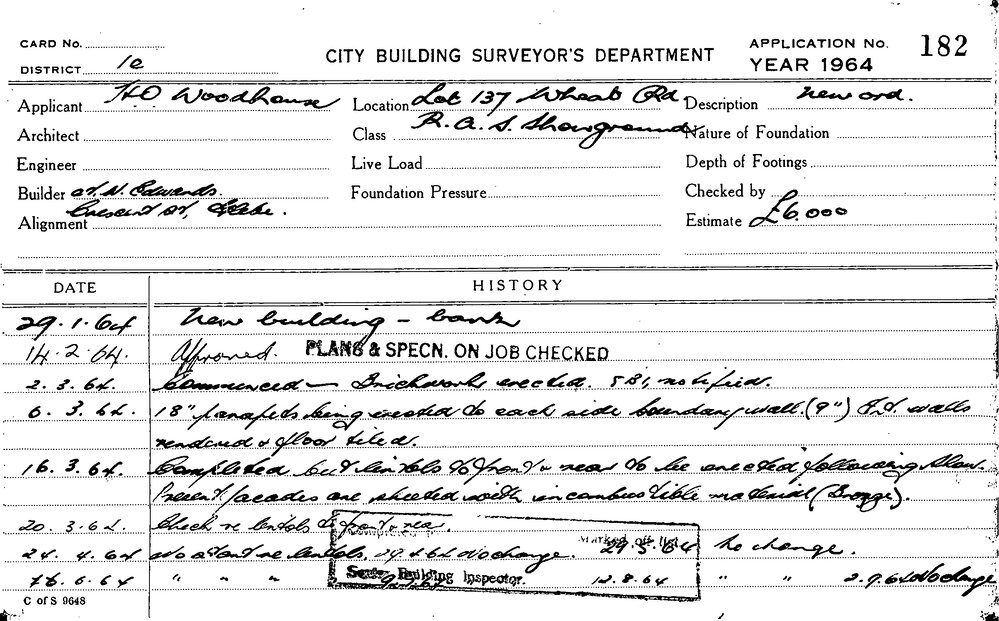 CARD No.
DISTRICT 1e
CITY BUILDING SURVEYOR'S DEPARTMENT
APPLICATION No. 182
YEAR 1964
Applicant H.O Woodhouse Location Lot 137 Wheat Rd Description new ord.
Architect Class R.A.S. Showground Nature of Foundation
Engineer Live Load Depth of Footings
Builder N. Edwards. Foundation Pressure Checked by
Alignment Crescent St, Glebe. Estimate £6,000
DATE HISTORY
29.1.64 New building - bank
14.2.64. Approved. PLANS & SPECN. ON JOB CHECKED
2.3.64. Commenced - Brickworks erected. notified.
6.3.64. 18" parapets being erected to each side boundary wall. (9") Int. walls
rendered & floor tiled.
16.3.64. Completed but lintols to front & rear to be erected following Show.
Present facades are sheeted with incombustible material (Bronze).
20.3.64. Check re lintols to front & rear.
24.4.64 re lentols, No change. Marked off list 29.5.64 No change.
6.64 " " " Senior Building Inspector. 12.8.64 " " 2.9.64 No change
C of S 9648